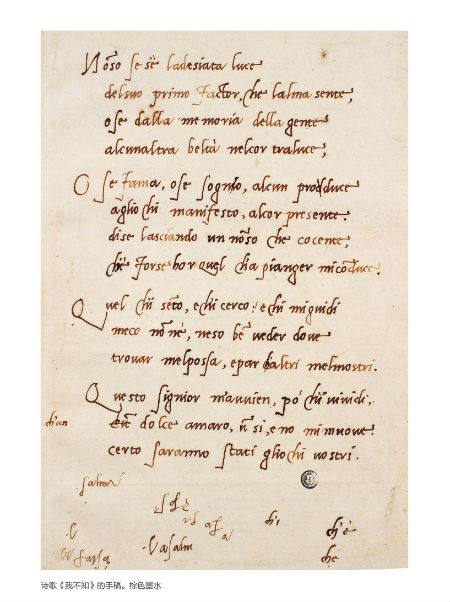 Noso se sè ladesiata luce
delsuo primo Factor, che lalma sente,
ose dalla memoria della gente
alcunaltra beltà nelcor traluce,
O se Fama, ose sognio, alcun prodduce
aglio chi manifesto, alcor presente.
dise lasciando un noso che cocente,
chè Forse hor quel chia pianger miconduce.
Quel chi seto, e chi cerco: e chi miguidi
meco nonè, neso be ueder doue
trouar melpossa, e par caltri melmostri.
Questo signior mauuien, po' chi uiuidi,
chun
dolce amaro, u si, e no mimuoue.
certo saranno stati gliochi uostri.
salma
chi
ch'è
Vasalm
che
诗歌《我不知》的手稿。棕色墨水